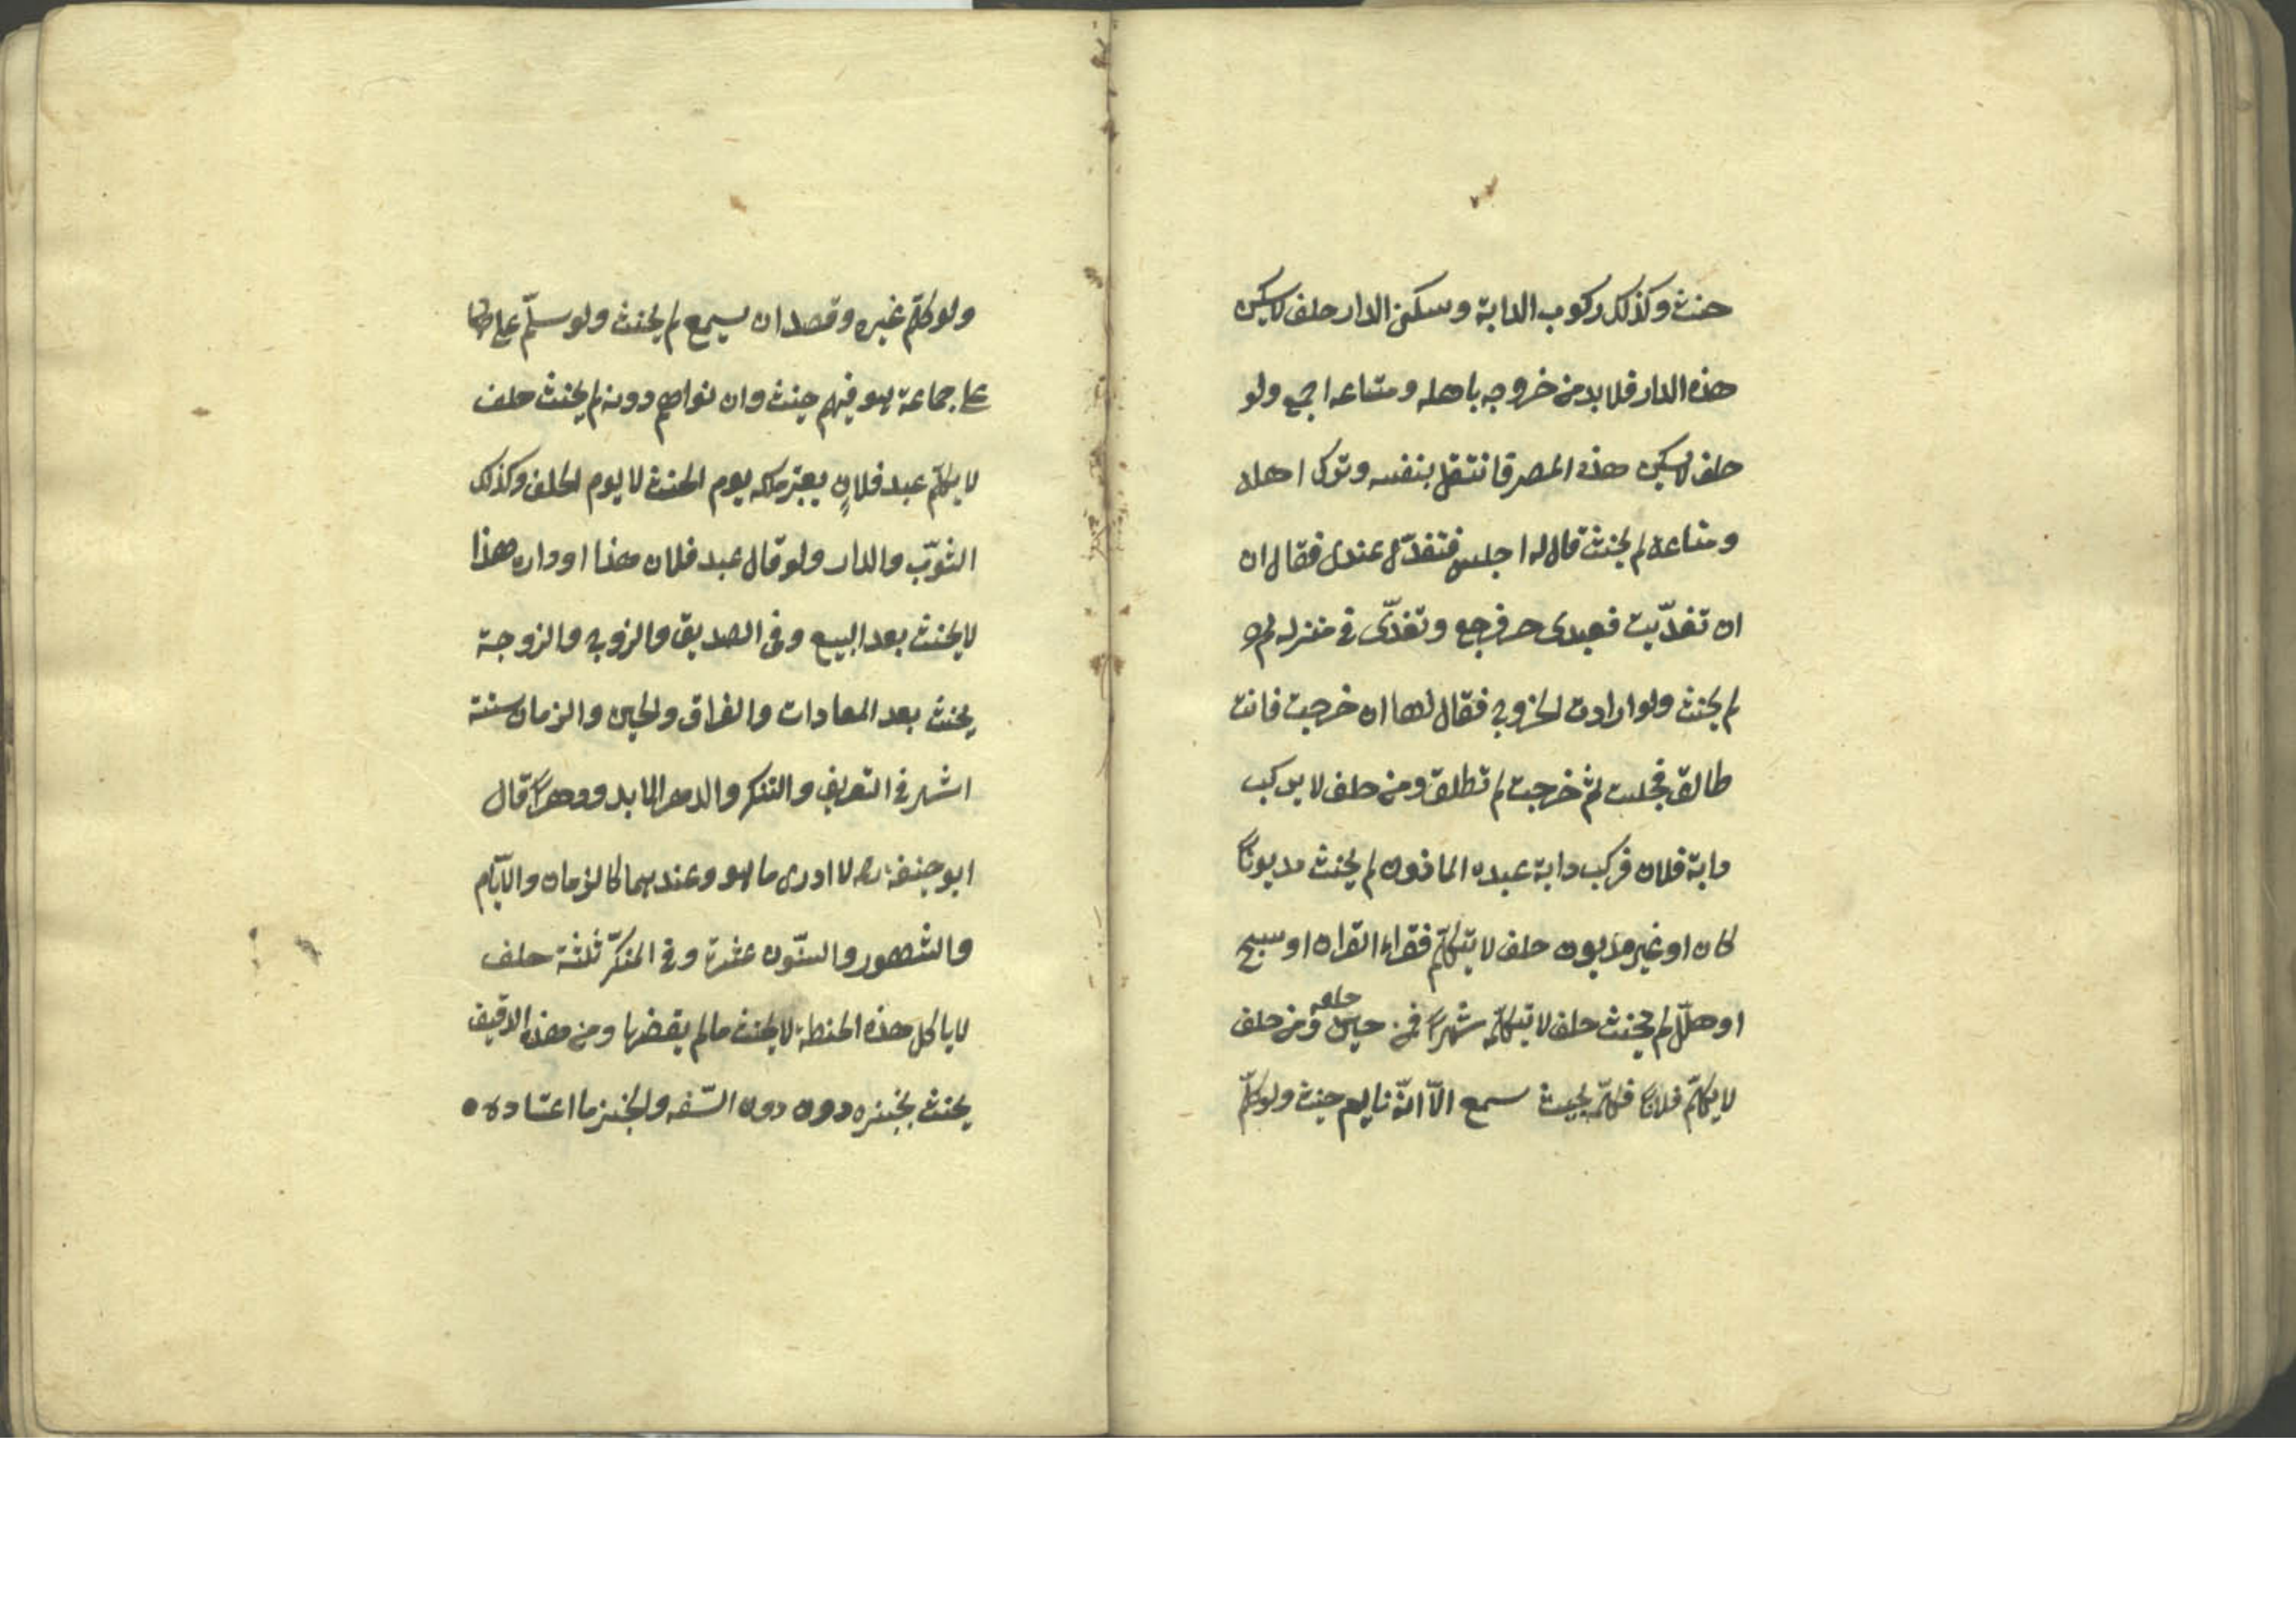 حنث وكذلك ركوب الدابة وسكنى الدار حلف لايسكن
هذه الدار فلا بد من خروجه باهله ومتاعه اجمع ولو
حلف لايسكن هذه المصر فانتقل بنفسه وترك اهله
ومتاعه لم يحنث قال له اجلس فتغدّى عندى فقال ان
ان تغدّيت فعبدى حر فرجع وتغدّى فى منزله لم
لم يحنث ولو ارادت الخروج فقال لها ان خرجت فانت
طالق فجلست ثم خرجت لم تطلق ومن حلف لا يركب
دابة فلان فركب دابة عبده الماذون لم يحنث مديونًا
كان او غير مديون حلف لا يتكلّم فقراء القران او سبح
او هلّل لم يحنث حلف لا يتكلّمه شهرًا فمن حين حلفه ومن حلف
لا يكلّم فلانًا فكلّمه بحيث سمع الّا انّه نايم حنث ولو كلّم
ولو كلّم غيره وقصد ان يسمع لم يحنث ولو سلّم على
على جماعة هو فيهم حنث وان نواهم دونه لم يحنث حلف
لا يكلّم عبد فلانٍ يعتبر ملكه يوم الحنث لا يوم الحلف وكذلك
الثوب والدار ولو قال عبد فلان هذا او داره هذا
لا يحنث بعد البيع وفى الصديق والزوج والزوجة
يحنث بعد المعادات والفراق والحين والزمان ستة
اشهر فى التعريف والتنكر والدهر الابد ودهرًا قال
ابو حنيفة رح لا ادرى ما هو وعندهما كالزمان والايّام
والشهور والسنّون عشرة وفى المنكّر ثلثة حلف
لا ياكل هذه الحنطة لا يحنث مالم يقضمها ومن هذا الدقيق
يحنث بخبزه دون دون السّفه والخبز ما اعتاده